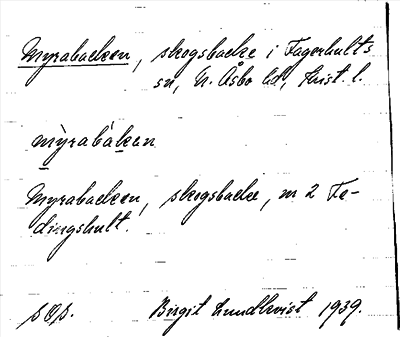 Myrabacken, skogsbacke i Fagerhults
sn, N. Åsbo hd, Krist. l.
mỳrabàkan
Myrabacken, skogsbacke, m 2 Fe-
dingshult.
sOs. Birgit Lundkvist 1939.